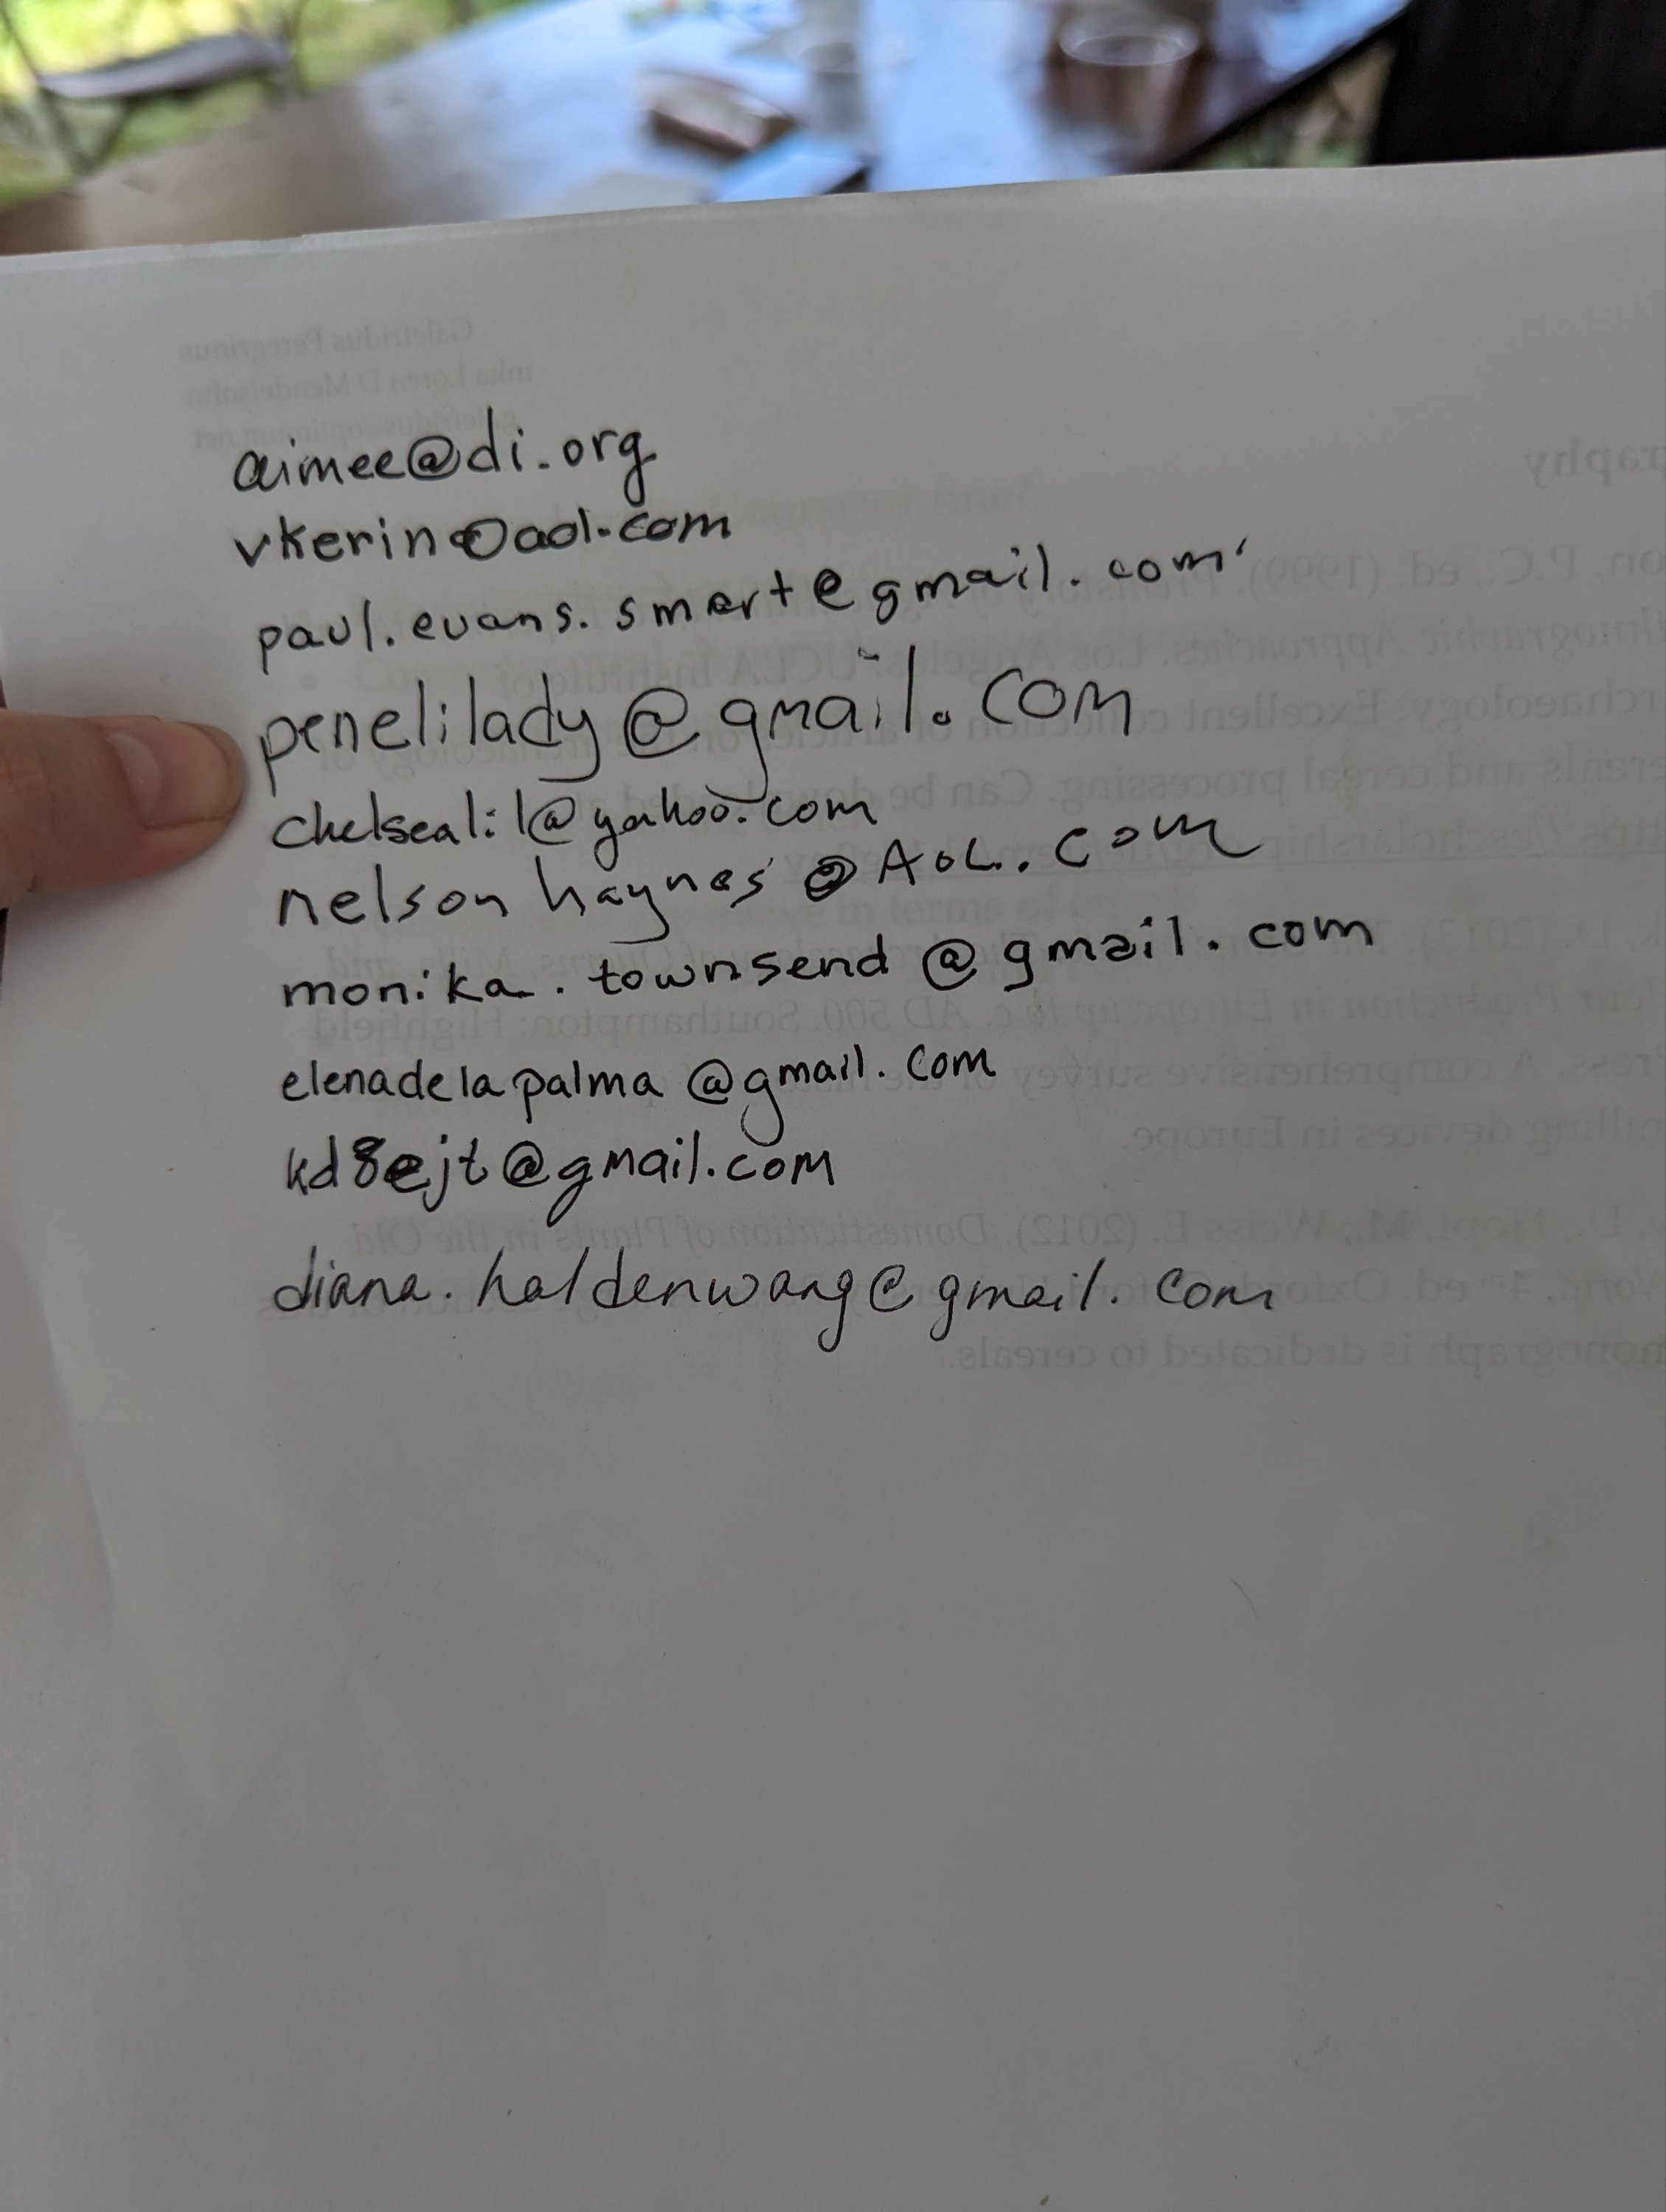 aimee@di.org
vkerin@aol.com
paul.evans.smart@gmail.com
penelilady@gmail.com
chelseali1@yahoo.com
nelson haynes @ AOL.com
monika.townsend @ gmail.com
elenadelapalma @gmail.com
kd8ejt@gmail.com
diana.haldenwang@gmail.com